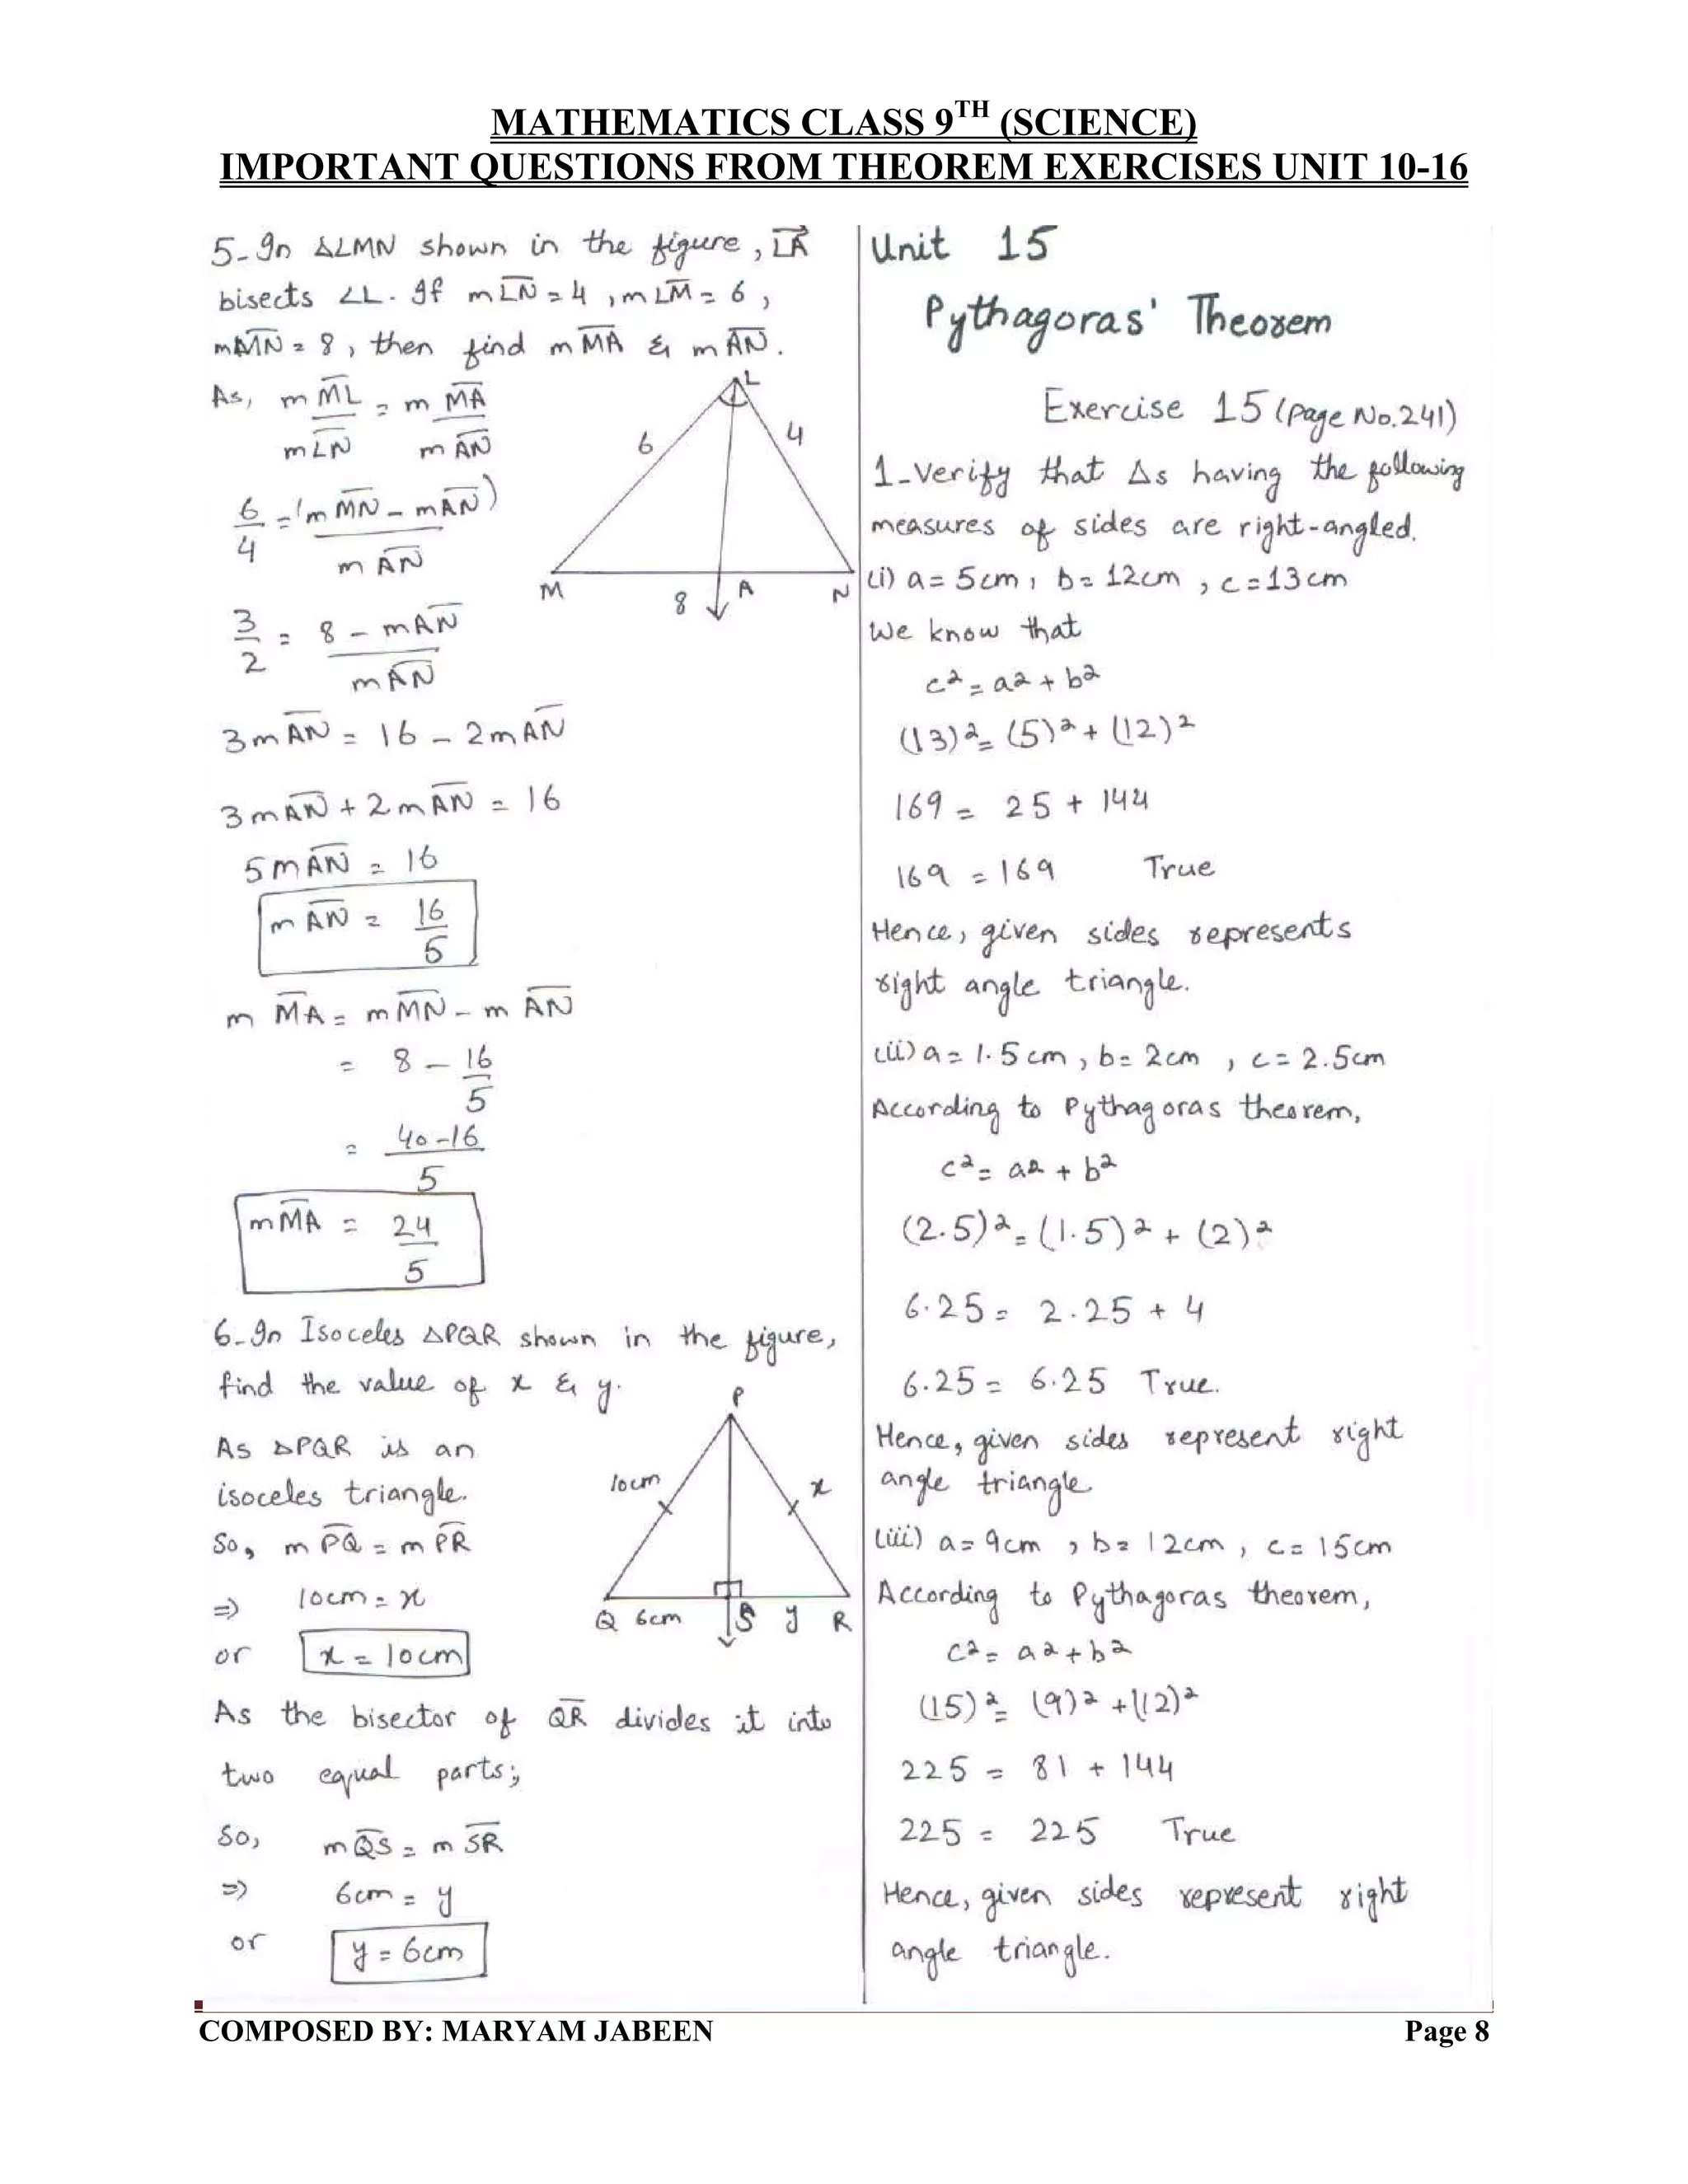 MATHEMATICS CLASS 9TH (SCIENCE)
IMPORTANT QUESTIONS FROM THEOREM EXERCISES UNIT 10-16
5-In ΔLMN shown in the figure, LA
bisects ∠L. If mLN = 4, mLM = 6,
mMN = 8, then find mMA & mAN.
As, mML/mLN = mMA/mAN
6/4 = (mMN - mAN)/mAN
3/2 = 8 - mAN/mAN
3mAN = 16 - 2mAN
3mAN + 2mAN = 16
5mAN = 16
mAN = 16/5
mMA = mMN - mAN
= 8 - 16/5
= 40-16/5
mMA = 24/5
L
6
4
M
8
A
N
6-In Isoceles ΔPQR shown in the figure,
find the value of x & y.
As ΔPQR is an
isoceles triangle.
So, mPQ = mPR
⇒ 10cm = x
or x = 10cm
P
10cm
x
Q 6cm S y R
As the bisector of QR divides it into
two equal parts;
So, mQS = mSR
⇒ 6cm = y
or y = 6cm
Unit 15
Pythagoras' Theorem
Exercise 15 (page No.241)
1-Verify that Δs having the following
measures of sides are right-angled.
(i) a = 5cm, b = 12cm, c = 13cm
We know that
c² = a² + b²
(13)² = (5)² + (12)²
169 = 25 + 144
169 = 169 True
Hence, given sides represents
right angle triangle.
(ii) a = 1.5cm, b = 2cm, c = 2.5cm
According to Pythagoras theorem,
c² = a² + b²
(2.5)² = (1.5)² + (2)²
6.25 = 2.25 + 4
6.25 = 6.25 True.
Hence, given sides represent right
angle triangle.
(iii) a = 9cm, b = 12cm, c = 15cm
According to Pythagoras theorem,
c² = a² + b²
(15)² = (9)² + (12)²
225 = 81 + 144
225 = 225 True
Hence, given sides represent right
angle triangle.
COMPOSED BY: MARYAM JABEEN Page 8